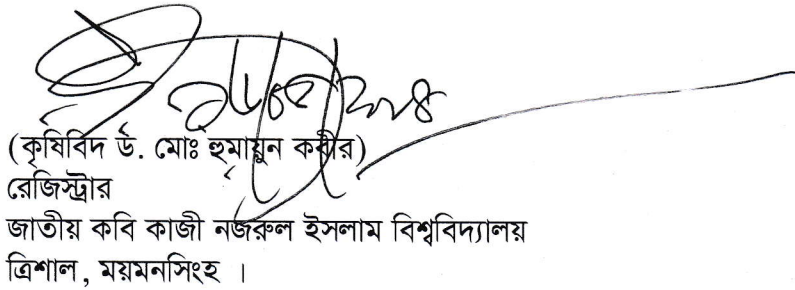 (কৃষিবিদ ড. মোঃ হুমায়ুন কবীর)
রেজিস্ট্রার
জাতীয় কবি কাজী নজরুল ইসলাম বিশ্ববিদ্যালয়
ত্রিশাল, ময়মনসিংহ ।